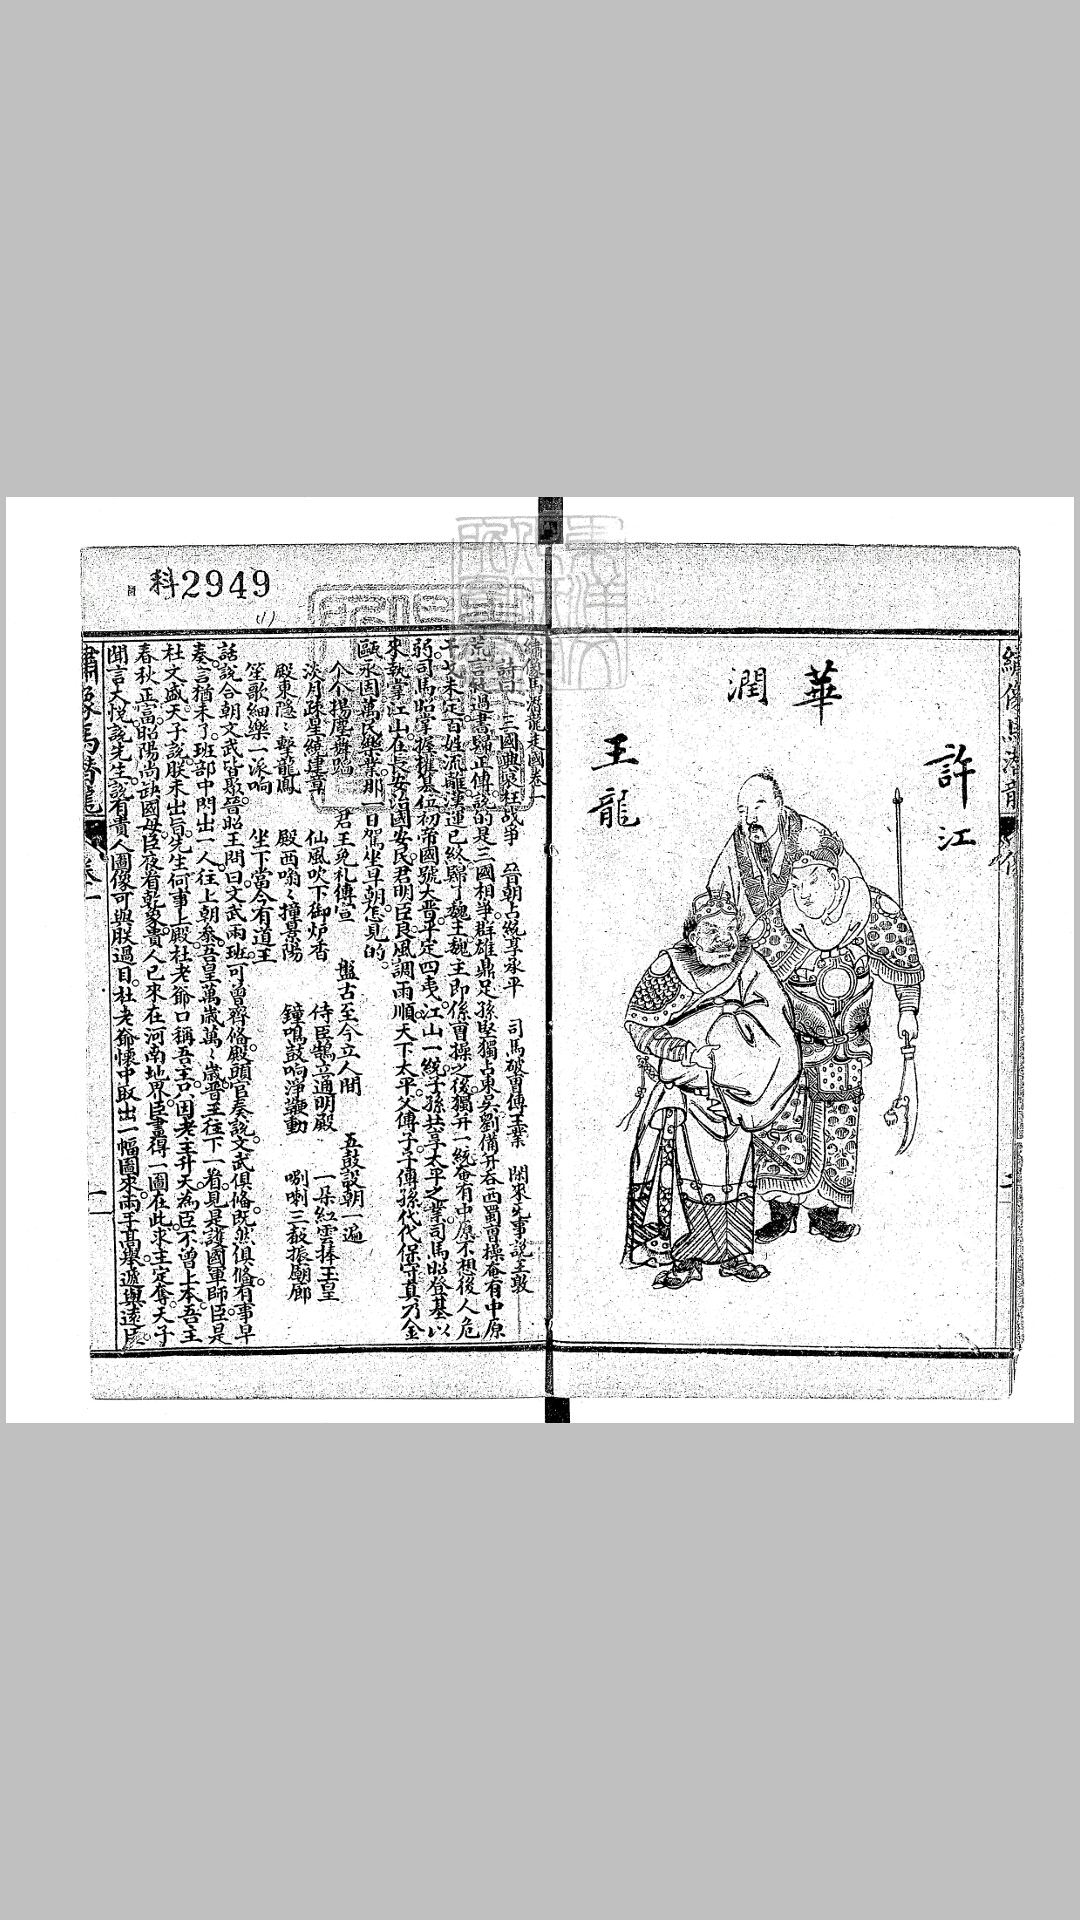 許江
華
潤
王龍
科2949
繡像馬潛龍走國卷一
詩曰 三國興衰狂战争 晉朝占統享永平 司馬破曹傳王業 閑來先事説王敦
荒言抄過書歸正傳説的是三國相爭群雄鼎足孫堅獨占東吳劉備并吞西蜀曹操奄有中原
干戈未定百姓流離漢運已終歸了魏王魏主即係曹操之後獨升一統奄有中原不想後人危
弱司馬昭掌握權基位初帝國號大晋平定四夷江山一統子孫共享太平之業司馬昭登基以
來執掌江山在長安治國安民君明臣良風調雨順天下太平父傳子子傳孫代代保守真乃金
甌永固萬民樂業那一日駕坐早朝怎見的
个个揚塵舞蹈 君王免礼傳宣 盤古至今立人間 五鼓設朝一遍
淡月疎星繞建章 仙風吹下御炉香 侍臣鵠立通明殿 一朵紅雲捧王皇
殿東隱〻擊龍鳳 殿西嗡〻撞景陽 鐘鳴鼓响淨鞭動 唎喇三敲振廟廊
笙歌細樂一派响 坐下當今有道王
話說合朝文武皆聚晉昭王問曰文武兩班可曾齊俻殿頭官奏説文武俱俻既然俱俻有事早
奏言猶未了班部中閃出一人往上朝參吾皇萬歲萬〻歲晉王往下一看見是護國軍師臣是
杜文盛天子説朕未出旨先生何事上殿杜老爺口稱吾王只因老主升天為臣不曾上本吾主
春秋正富昭陽尚缺國母臣夜看乾象貴人已來在河南地界臣畫得一圖在此求主定奪天子
聞言大悅説先生説有貴人圖像可與朕過目杜老爺懷中取出一幅圖來兩手高舉遞與遠辰
繡像馬潛龍
卷一
一